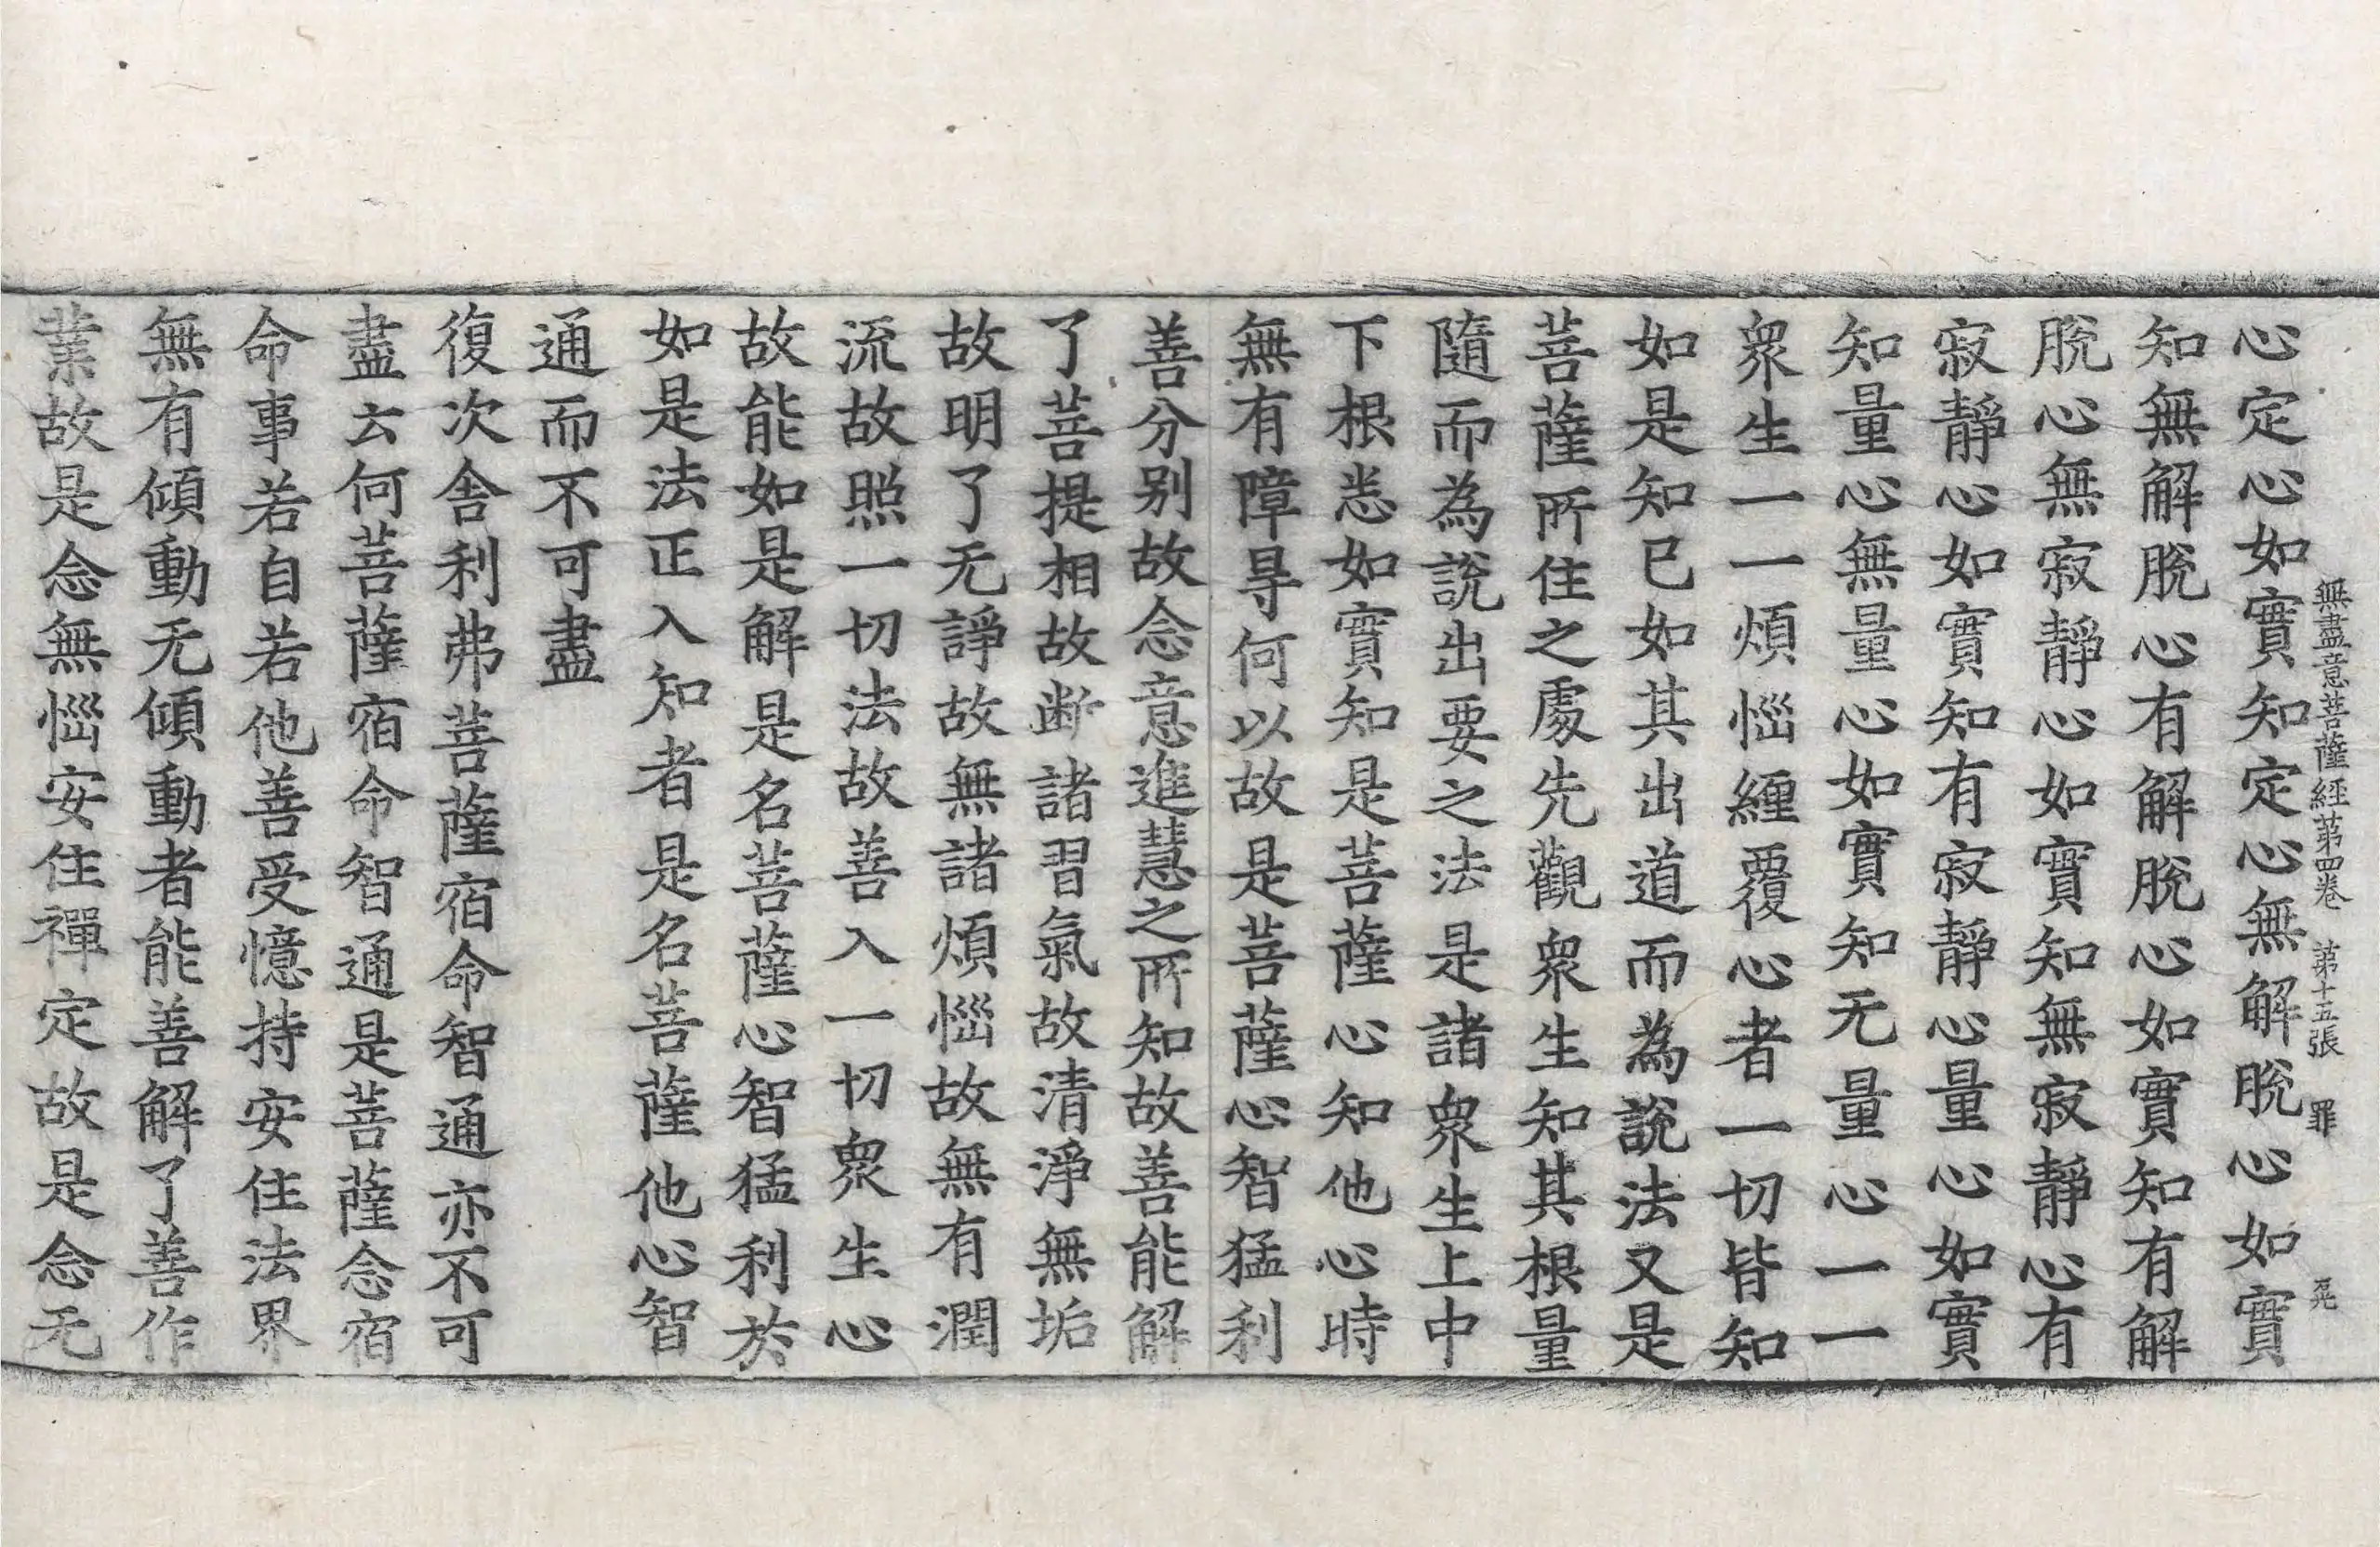 無盡意菩薩經第四卷 第十五張 罪
心定心如實知定心無解脫心如實
知無解脫心有解脫心如實知有解
脫心無寂靜心如實知無寂靜心有
寂靜心如實知有寂靜心量心如實
知量心無量心如實知无量心一一
衆生一一煩惱纏覆心者一切皆知
如是知已如其出道而為說法又是
菩薩所住之處先觀衆生知其根量
隨而為說出要之法是諸衆生上中
下根悉如實知是菩薩心知他心時
無有障㝵何以故是菩薩心智猛利
善分别故念意進慧之所知故善能解
了菩提相故断諸習氣故清淨無垢
故明了无諍故無諸煩惱故無有潤
流故照一切法故善入一切衆生心
故能如是解是名菩薩心智猛利於
如是法正入知者是名菩薩他心智
通而不可盡
復次舍利弗菩薩宿命智通亦不可
盡云何菩薩宿命智通是菩薩念宿
命事若自若他善受憶持安住法界
無有傾動无傾動者能善解了善作
業故是念無惱安住禪定故是念无